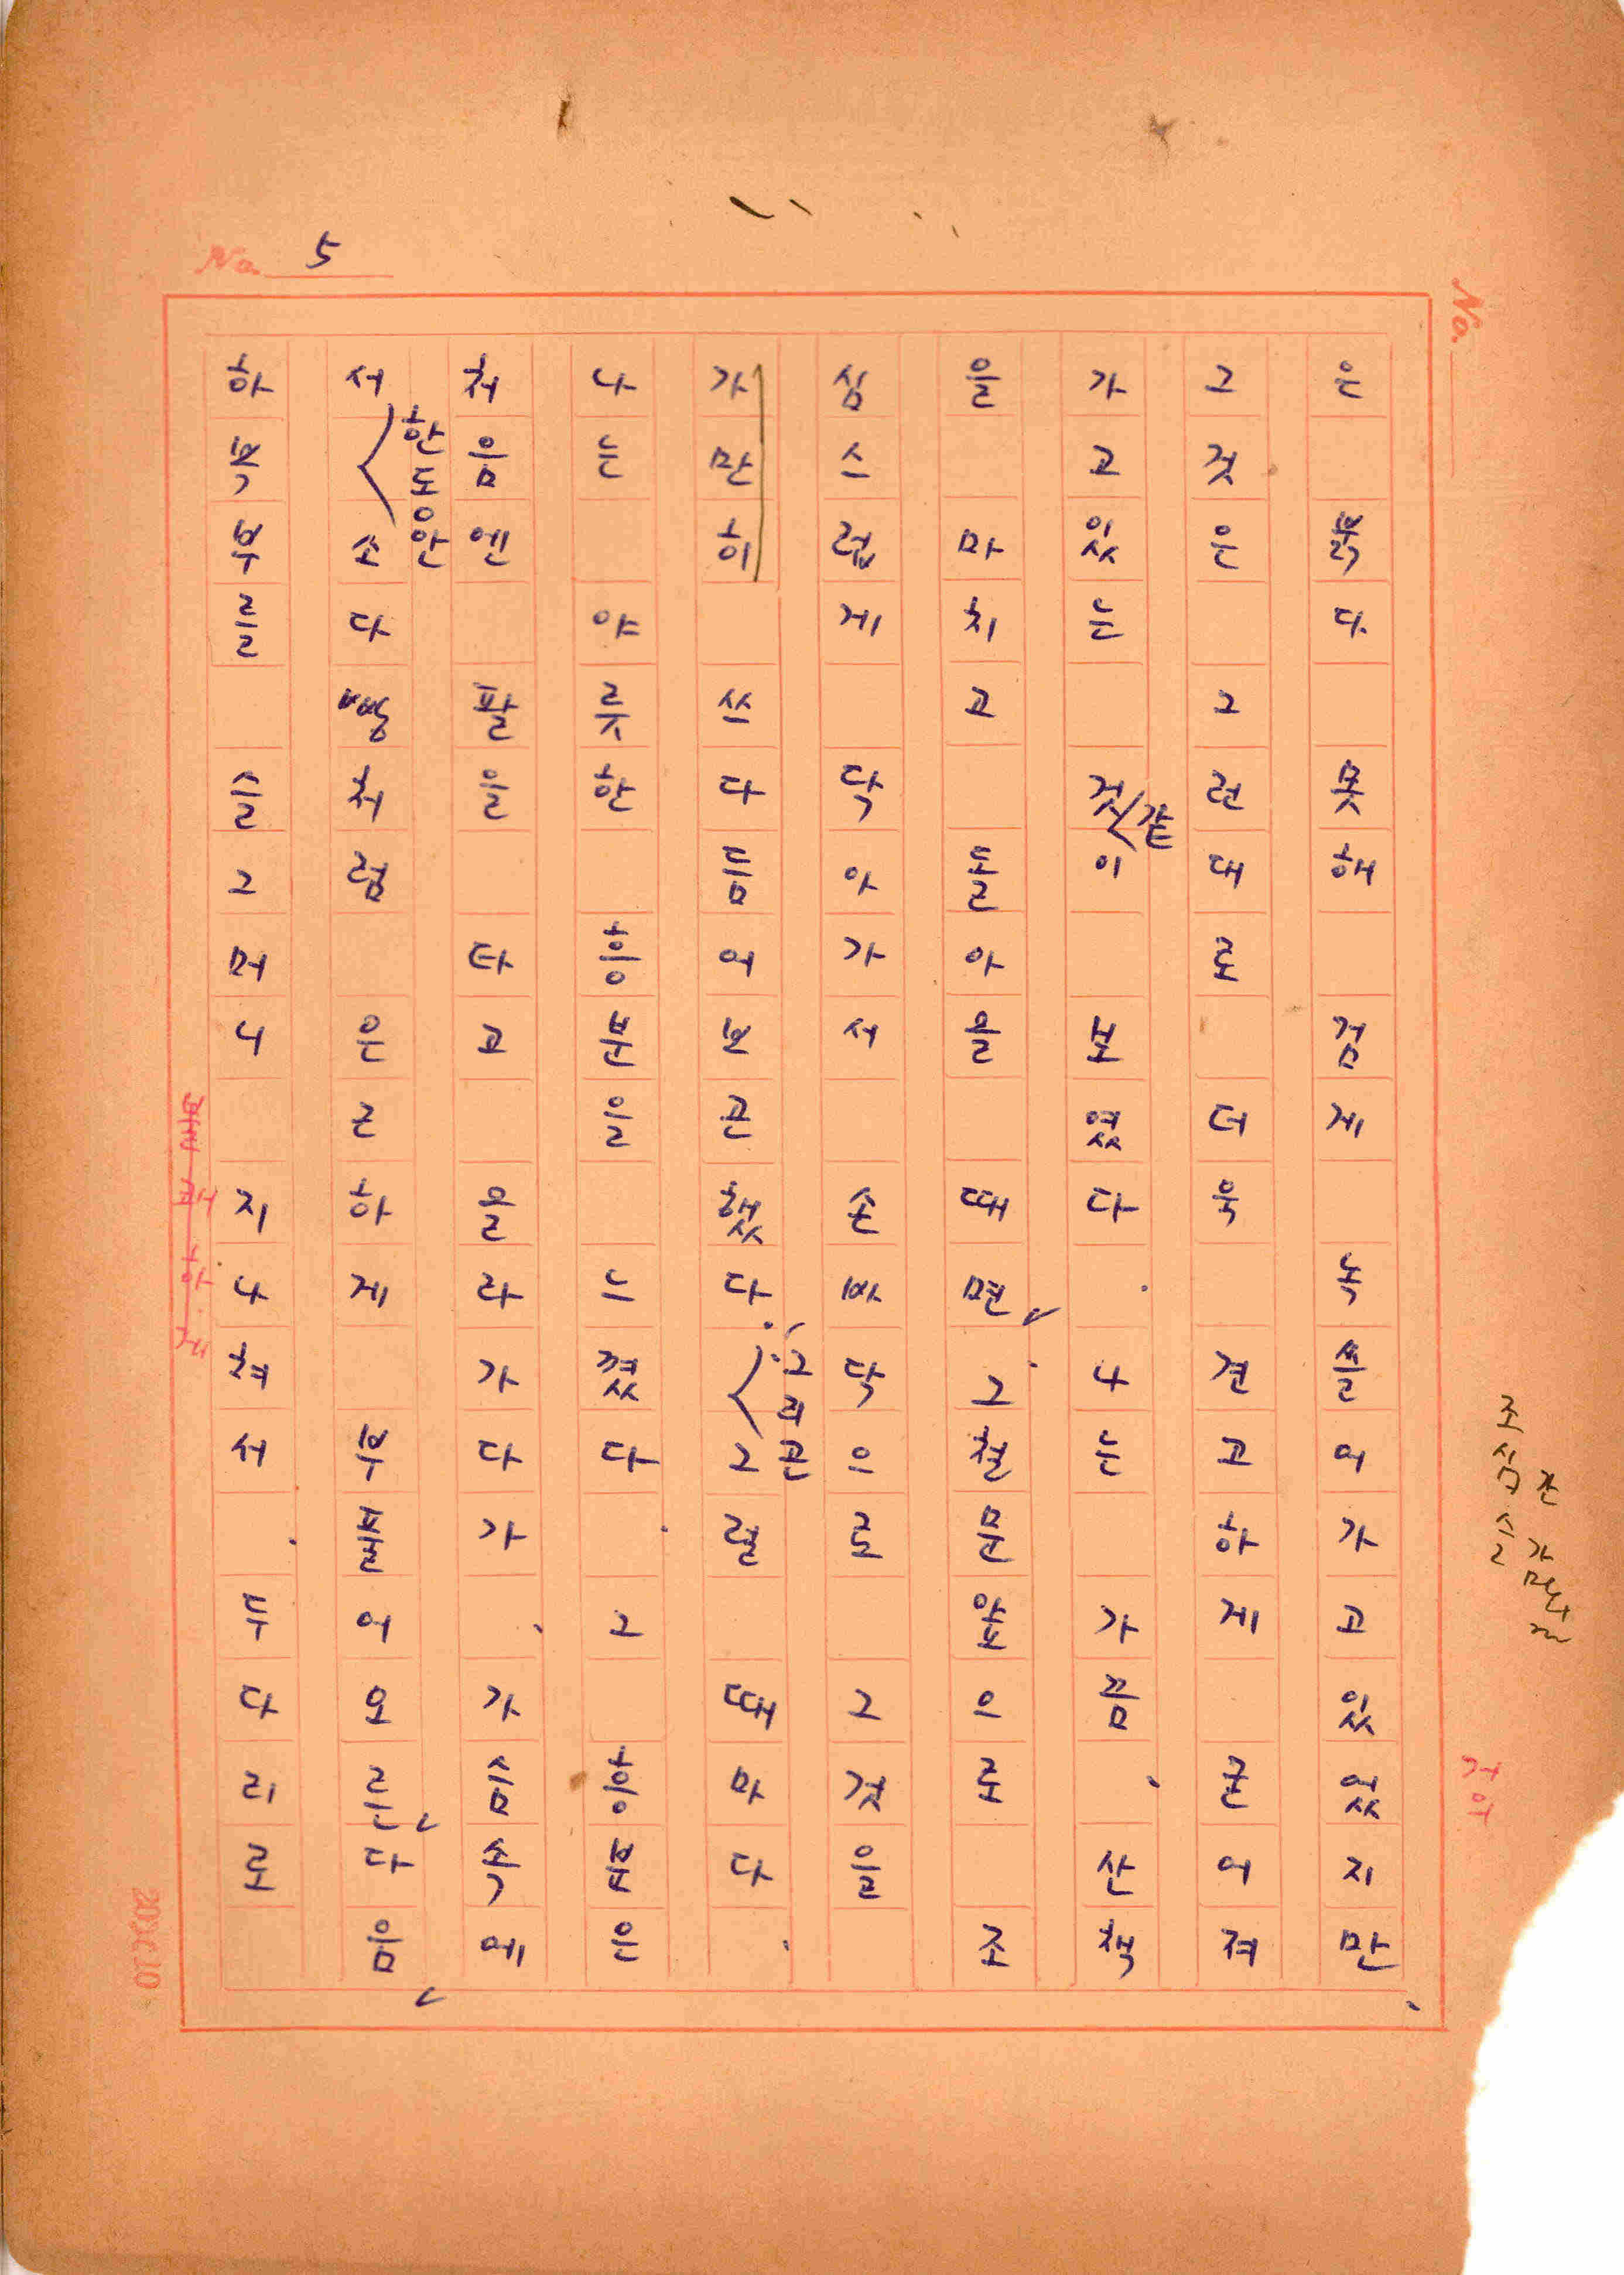 No. 5
No.
은 붉다 못해 검게 녹쓸어가고있었지만,
그것은 그런대로 더욱 견고하게 굳어져
가고있는 것같이 보였다. 나는 가끔, 산책
을 마치고 돌아올 때면, 그철문앞으로 조
심스럽게 닥아가서 손바닥으로 그것을
가만히 쓰다듬어보곤했다. 그리곤 그럴 때마다,
나는 야릇한 흥분을 느꼈다. 그 흥분은
처음엔 팔을 타고 올라가다가, 가슴속에
서 한동안 소다빵처럼 은근하게 부풀어오른, 다음,
하복부를 슬그머니 지나쳐서, 두다리로
20×10